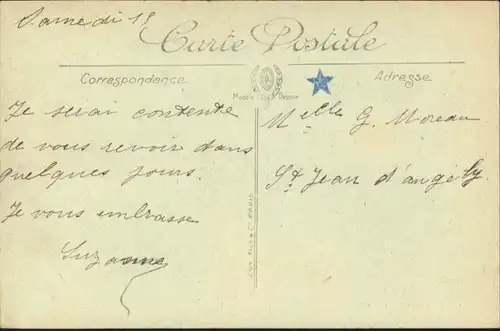 Samedi 15
Carte Postale
Correspondance
Adresse
Modèle Déposé
Je serai contente
de vous revoir dans
quelques jours.
Je vous embrasse
Suzanne
Melle G. Moreau
St Jean d'angély